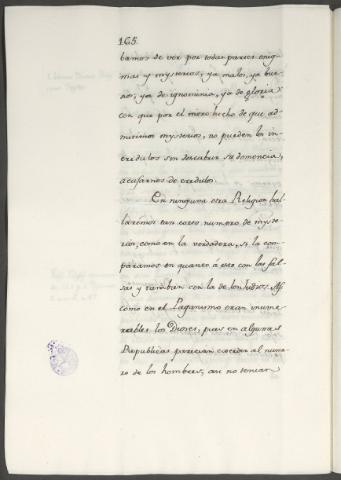 165.
bamos de ver por todas partes enig-
mas y mysterios, ya malos, ya bue-
nos, ya de ignominia, ya de gloria:
con que por el mero hecho de que ad-
mitimos mysterios, no pueden los in-
credulos sin descubrir su demencia,
acusarnos de credulos.
En ninguna otra Religion ha-
llaremos tan corto numero de myste-
rios, como en la verdadera, si la com-
paramos en quanto á esto con las fal-
sas y tambien con la de los Judios. Asi
como en el Paganismo eran innume-
rables los Dioses, pues en algunas
Republicas parecian exceder al nume-
ro de los hombres, asi no tenian